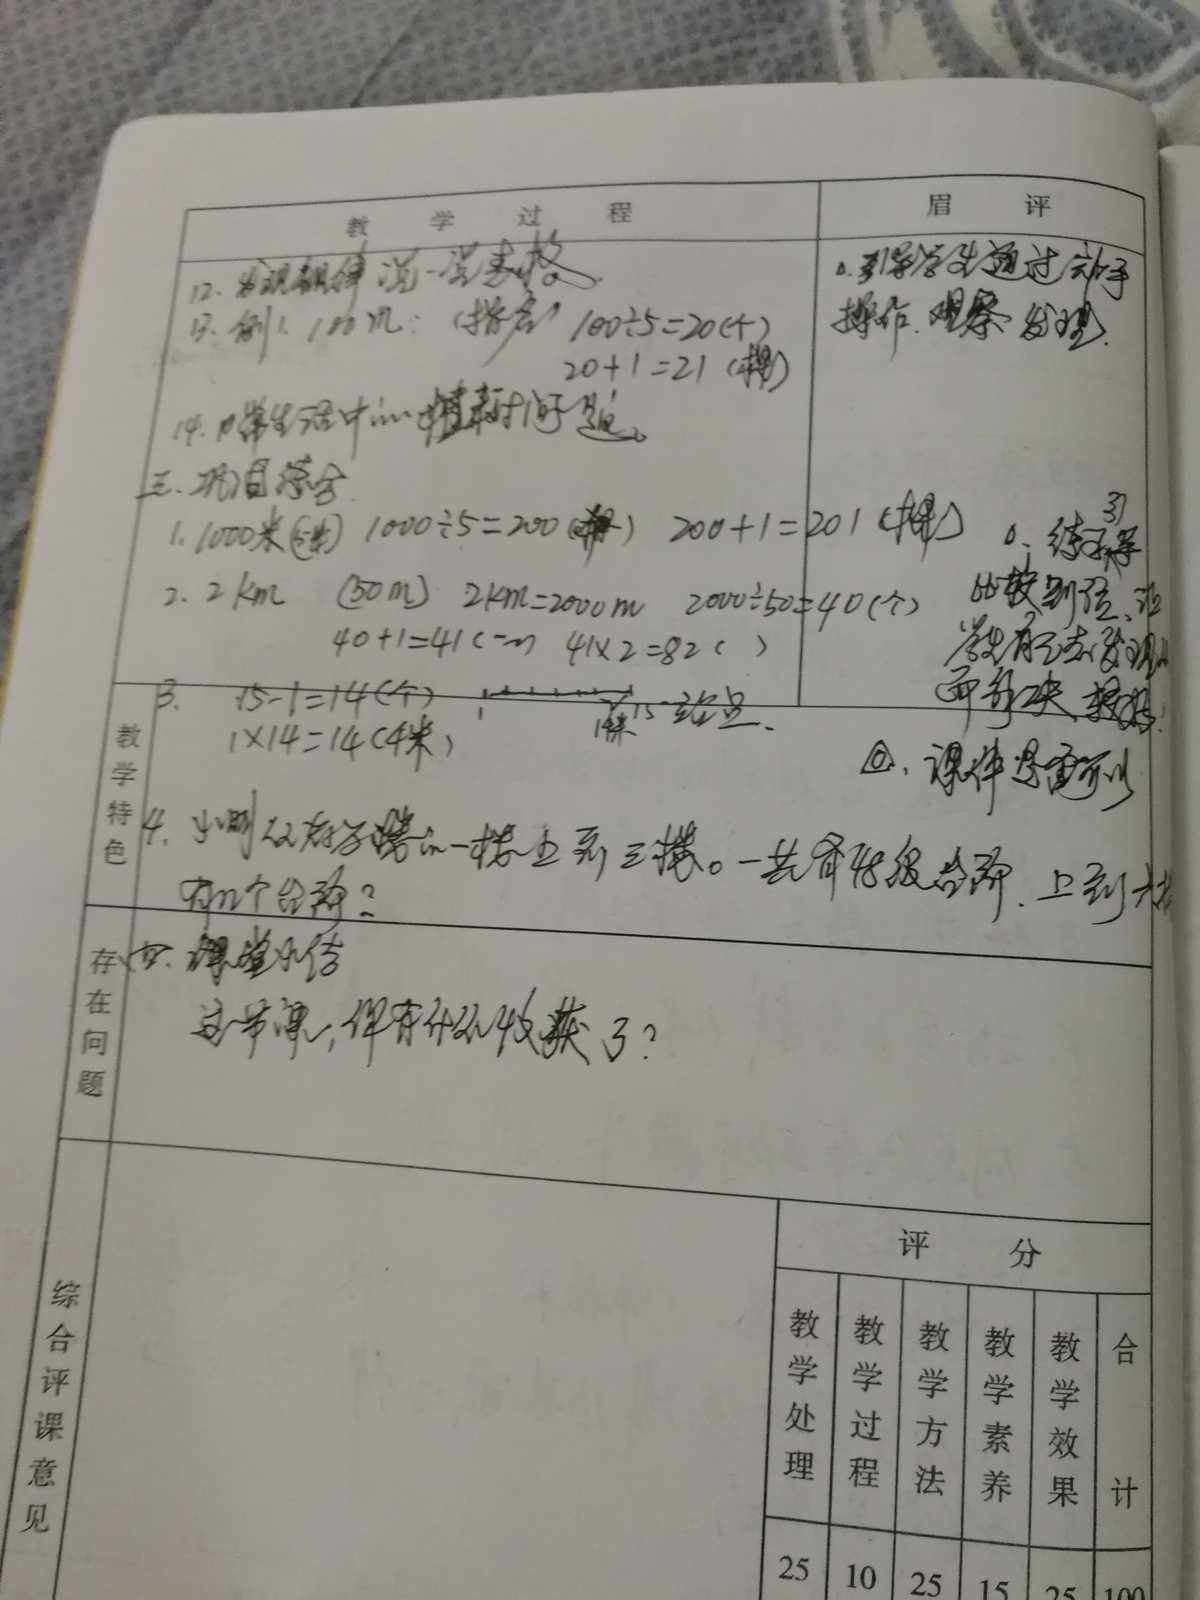 教 学 过 程
眉 评
12. 发现规律 说一说表格
13. 例1. 100m: (指名) 100÷5=20(个)
20+1=21 (棵)
14. 日常生活中的植树问题。
三. 巩固练习
1. 1000米(5米) 1000÷5=200(棵) 200+1=201(棵)
2. 2km (50m) 2km=2000m 2000÷50=40(个)
40+1=41(一) 41×2=82( )
3. 15-1=14(个) 1 15
1×14=14(千米)
4. 小明从一楼上到三楼。一共有48级台阶. 上到六楼
有几个台阶?
四. 课堂小结
这节课, 你有什么收获了?
引导学生通过动手
操作. 观察 发现.
练习
比较到位、
学生自己去发现
课件
教学特色
存在问题
综合评课意见
评 分
教学处理
教学过程
教学方法
教学素养
教学效果
合 计
25 10 25 15 25 100